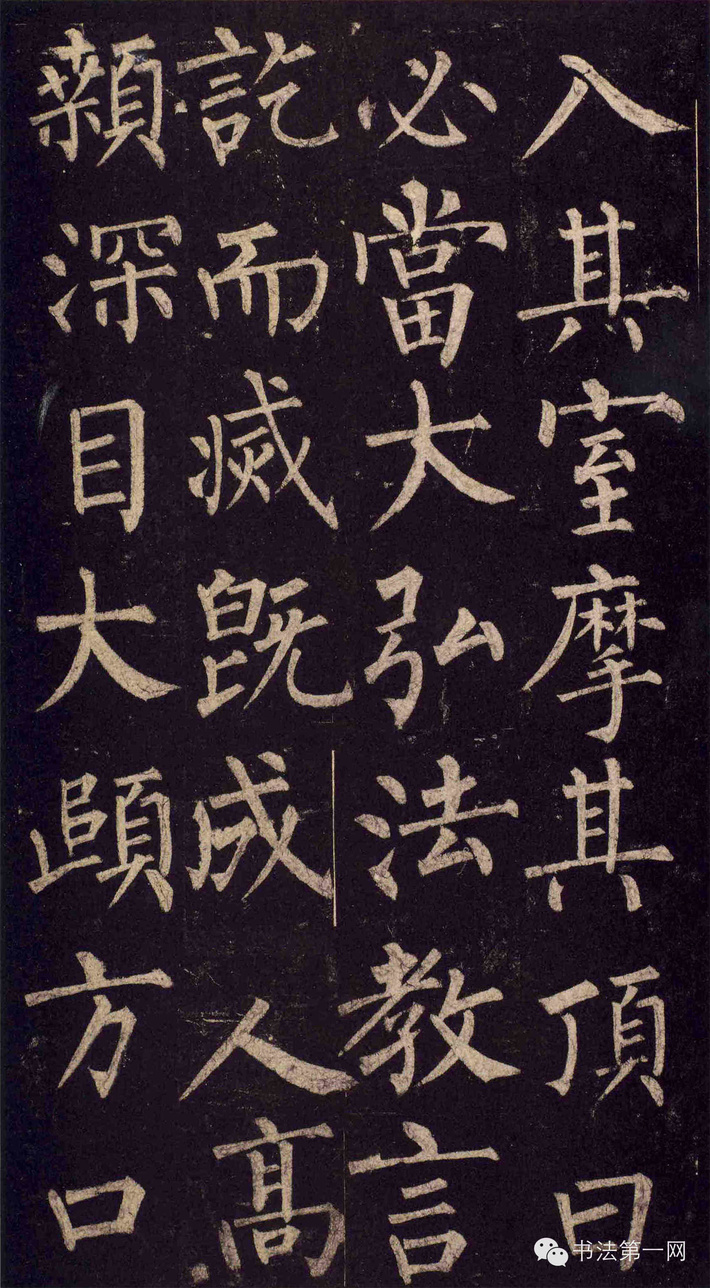 入其室摩其頂曰
必當大弘法教言
訖而滅既成人高
顙深目大頤方口
书法第一网